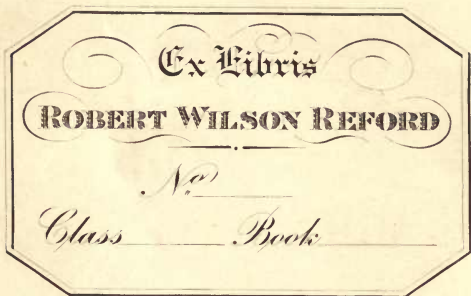 Ex Libris
ROBERT WILSON REFORD
No
Class Book